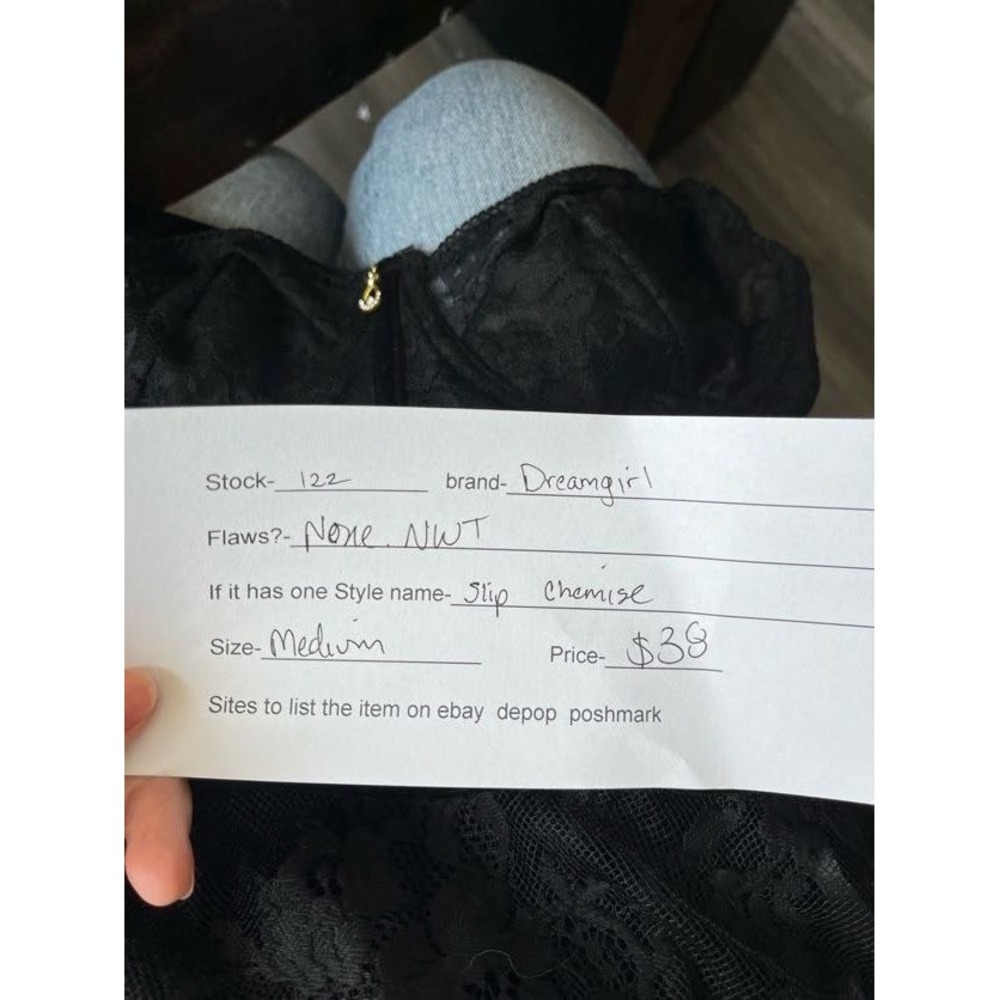 Stock- 122 brand- Dreamgirl
Flaws?- None. NWT
If it has one Style name- Slip Chemise
Size- Medium Price- $38
Sites to list the item on ebay depop poshmark